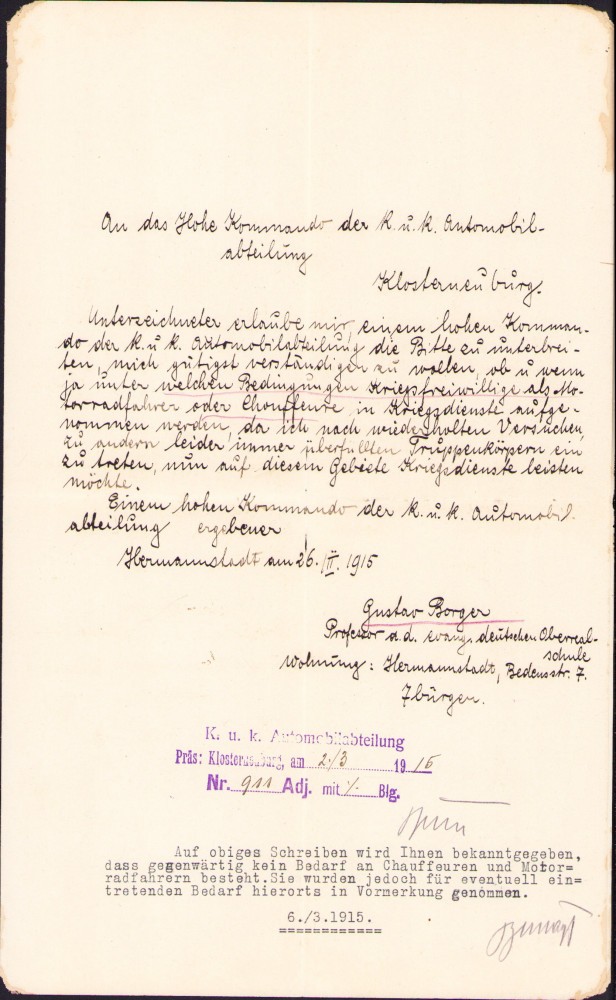 An das Hohe Kommando der k. u. k. Automobil-
abteilung
Klosterneuburg.
Unterzeichneter erlaube mir, einem hohen Komman-
do der k. u. k. Automobilabteilung die Bitte zu unterbrei-
ten, mich gütigst verständigen zu wollen, ob u wenn
ja unter welchen Bedingungen Kriegsfreiwillige als Mo-
torradfahrer oder Chouffeure in Kriegsdienste aufge-
nommen werden, da ich nach wiederholten Versuchen,
zu andern leider immer überfüllten Truppenkörpern ein
zu treten, nun auf diesem Gebiete Kriegsdienste leisten
möchte.
Einem hohen Kommando der k. u. k. Automobil.
abteilung ergebener
Hermannstadt am 26./II. 1915
Gustav Borger
Professor a. d. evang. deutschen Oberreal-
schule
Wohnung: Hermannstadt, Bedeusstr. 7.
7bürgen.
K. u. k. Automobilabteilung
Präs: Klosterneuburg, am 2./3 1915
Nr. 911 Adj. mit ./. Blg.
Auf obiges Schreiben wird Ihnen bekanntgegeben,
dass gegenwärtig kein Bedarf an Chauffeuren und Motor=
radfahrern besteht.Sie wurden jedoch für eventuell ein=
tretenden Bedarf hierorts in Vormerkung genommen.
6./3.1915.
============